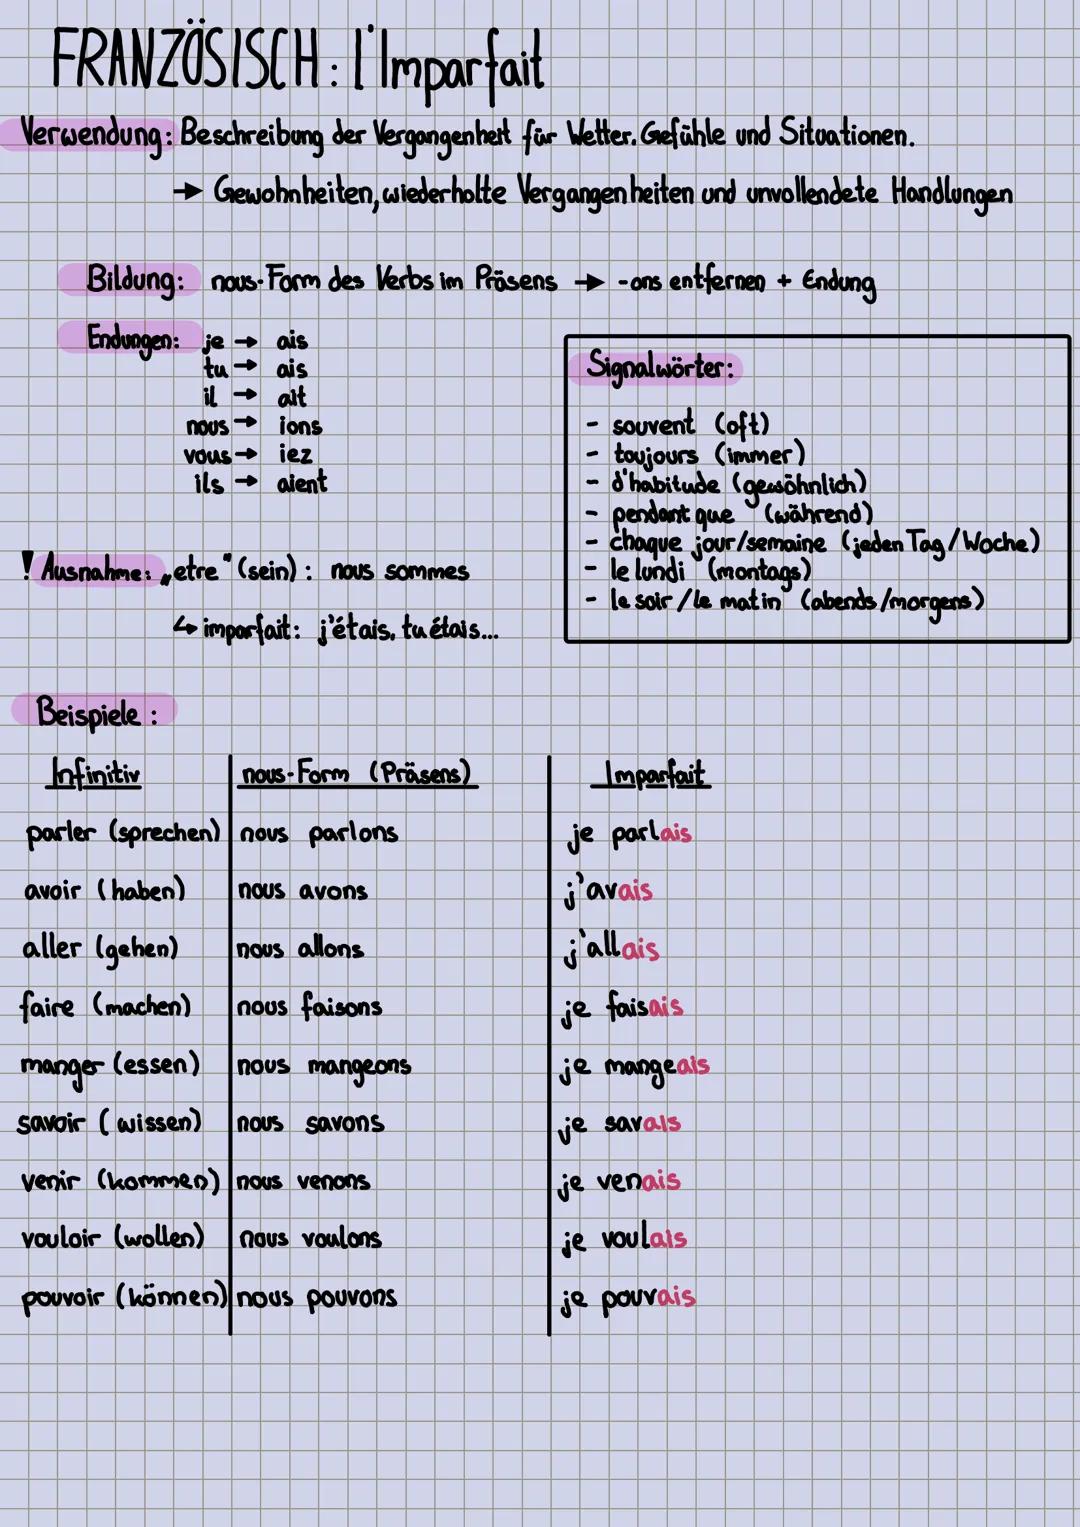 FRANZÖSISCH: l'Imparfait
Verwendung: Beschreibung der Vergangenheit für Wetter. Gefühle und Situationen.
→ Gewohnheiten, wiederholte Vergangenheiten und unvollendete Handlungen
Bildung: nous-Form des Verbs im Präsens → -ons entfernen + Endung
Endungen: je → ais
tu → ais
il → ait
nous → ions
vous → iez
ils → aient
Signalwörter:
- souvent (oft)
- toujours (immer)
- d'habitude (gewöhnlich)
- pendant que (während)
- chaque jour/semaine (jeden Tag/Woche)
- le lundi (montags)
- le soir/le matin (abends/morgens)
! Ausnahme: „etre" (sein): nous sommes
↳ imparfait: j'étais, tu étais...
Beispiele:
Infinitiv nous-Form (Präsens) Imparfait
parler (sprechen) nous parlons je parlais
avoir (haben) nous avons j'avais
aller (gehen) nous allons j'allais
faire (machen) nous faisons je faisais
manger (essen) nous mangeons je mangeais
savoir (wissen) nous savons je savais
venir (kommen) nous venons je venais
vouloir (wollen) nous voulons je voulais
pouvoir (können) nous pouvons je pouvais